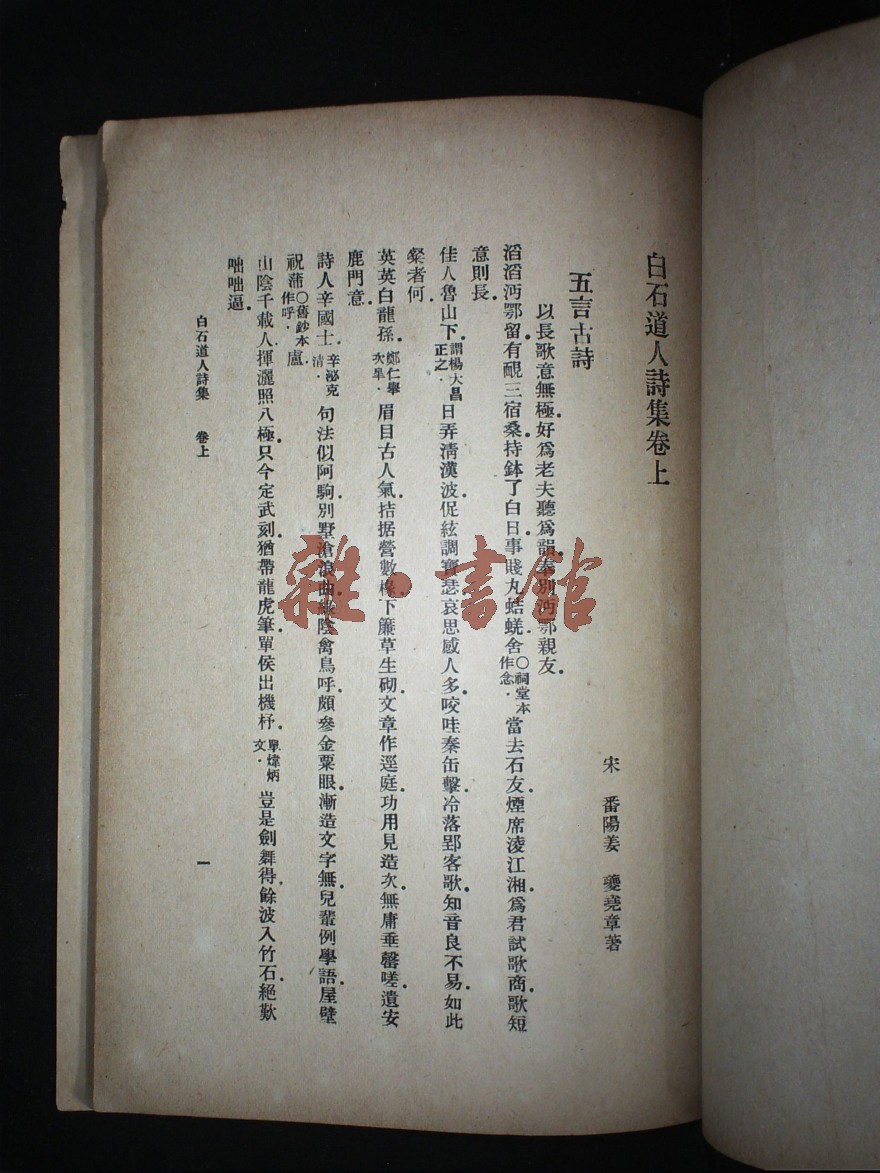 白石道人詩集卷上
宋　番陽姜　夔堯章著
五言古詩
以長歌意無極好爲老夫聽爲韻奉別沔鄂親友
滔滔沔鄂留有靦三宿桑持鉢了白日事賤丸蛣蜣舍○祠堂本作念.當去石友煙席淩江湘爲君試歌商歌短
意則長
佳人魯山下謂楊大昌正之.日弄淸漢波促絃調寶瑟哀思感人多咬哇秦缶擊冷落郢客歌知音良不易如此
粲者何
英英白龍孫鄭仁舉次臯.眉目古人氣拮据營數椽下簾草生砌文章作逕庭功用見造次無庸垂罄嗟遺安
鹿門意
詩人辛國士辛泌克淸.句法似阿駒別墅滄浪曲綠陰禽鳥呼頗參金粟眼漸造文字無兒輩例學語屋壁
祝蒲○舊鈔本作呼.盧
山陰千載人揮灑照八極只今定武刻猶帶龍虎筆單侯出機杼單煒炳文.豈是劍舞得餘波入竹石絕歎
咄咄逼
白石道人詩集　卷上
一
雜·書館